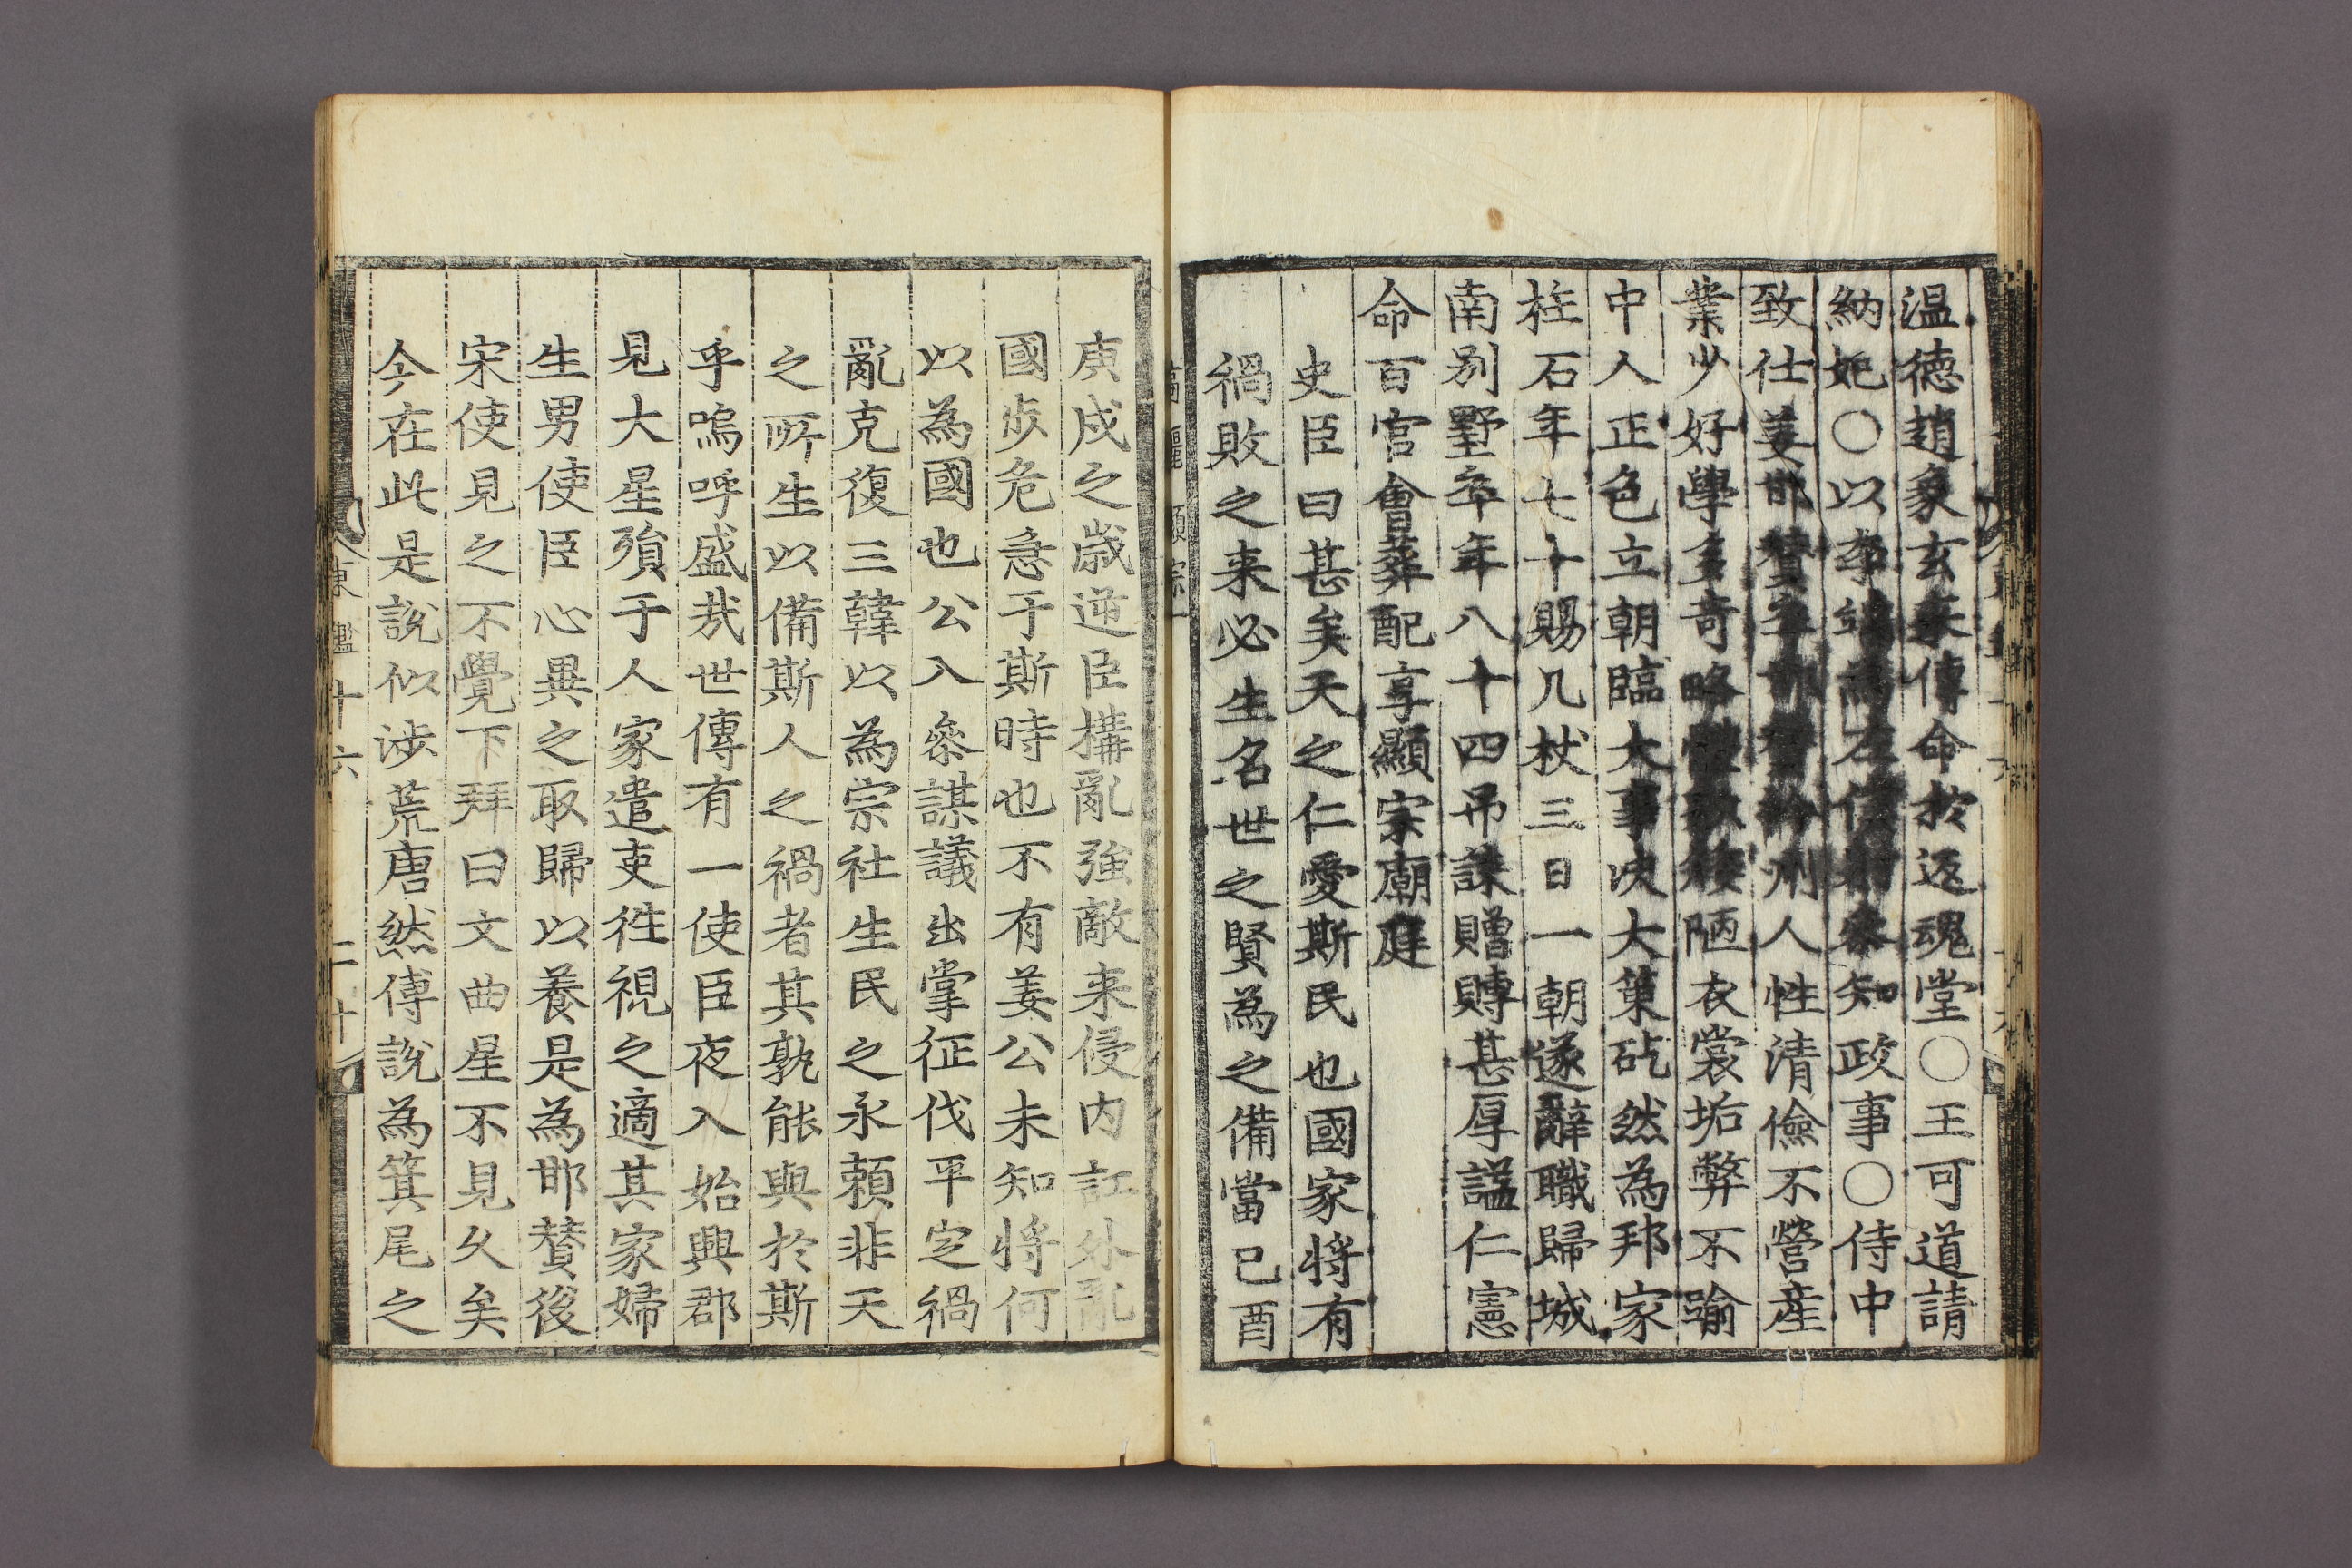 温德趙象玄奉傳命於返魂堂○王可道請
納妃○以李端為左僕射叅知政事○侍中
致仕姜邯贊卒邯贊衿州人性清儉不營産
業少好學多奇略體貌矮陋衣裳垢弊不踰
中人正色立朝臨大事决大策矻然為邦家
柱石年七十賜几杖三日一朝遂辭職歸城
南别墅卒年八十四吊誄贈賻甚厚諡仁憲
命百官會葬配享顯宗廟庭
史臣曰甚矣天之仁愛斯民也國家將有
禍敗之来必生名世之賢為之備當己酉
庚戌之歲逆臣構亂強敵来侵内訌外亂
國步危急于斯時也不有姜公未知將何
以為國也公入叅謀議出掌征伐平定禍
亂克復三韓以為宗社生民之永頼非天
之所生以備斯人之禍者其孰能與於斯
乎嗚呼盛㢤世傳有一使臣夜入始興郡
見大星殞于人家遣吏徃視之適其家婦
生男使臣心異之取歸以養是為邯贊後
宋使見之不覺下拜曰文曲星不見久矣
今在此是說似涉荒唐然傅說為箕尾之
東鑑十六
二十